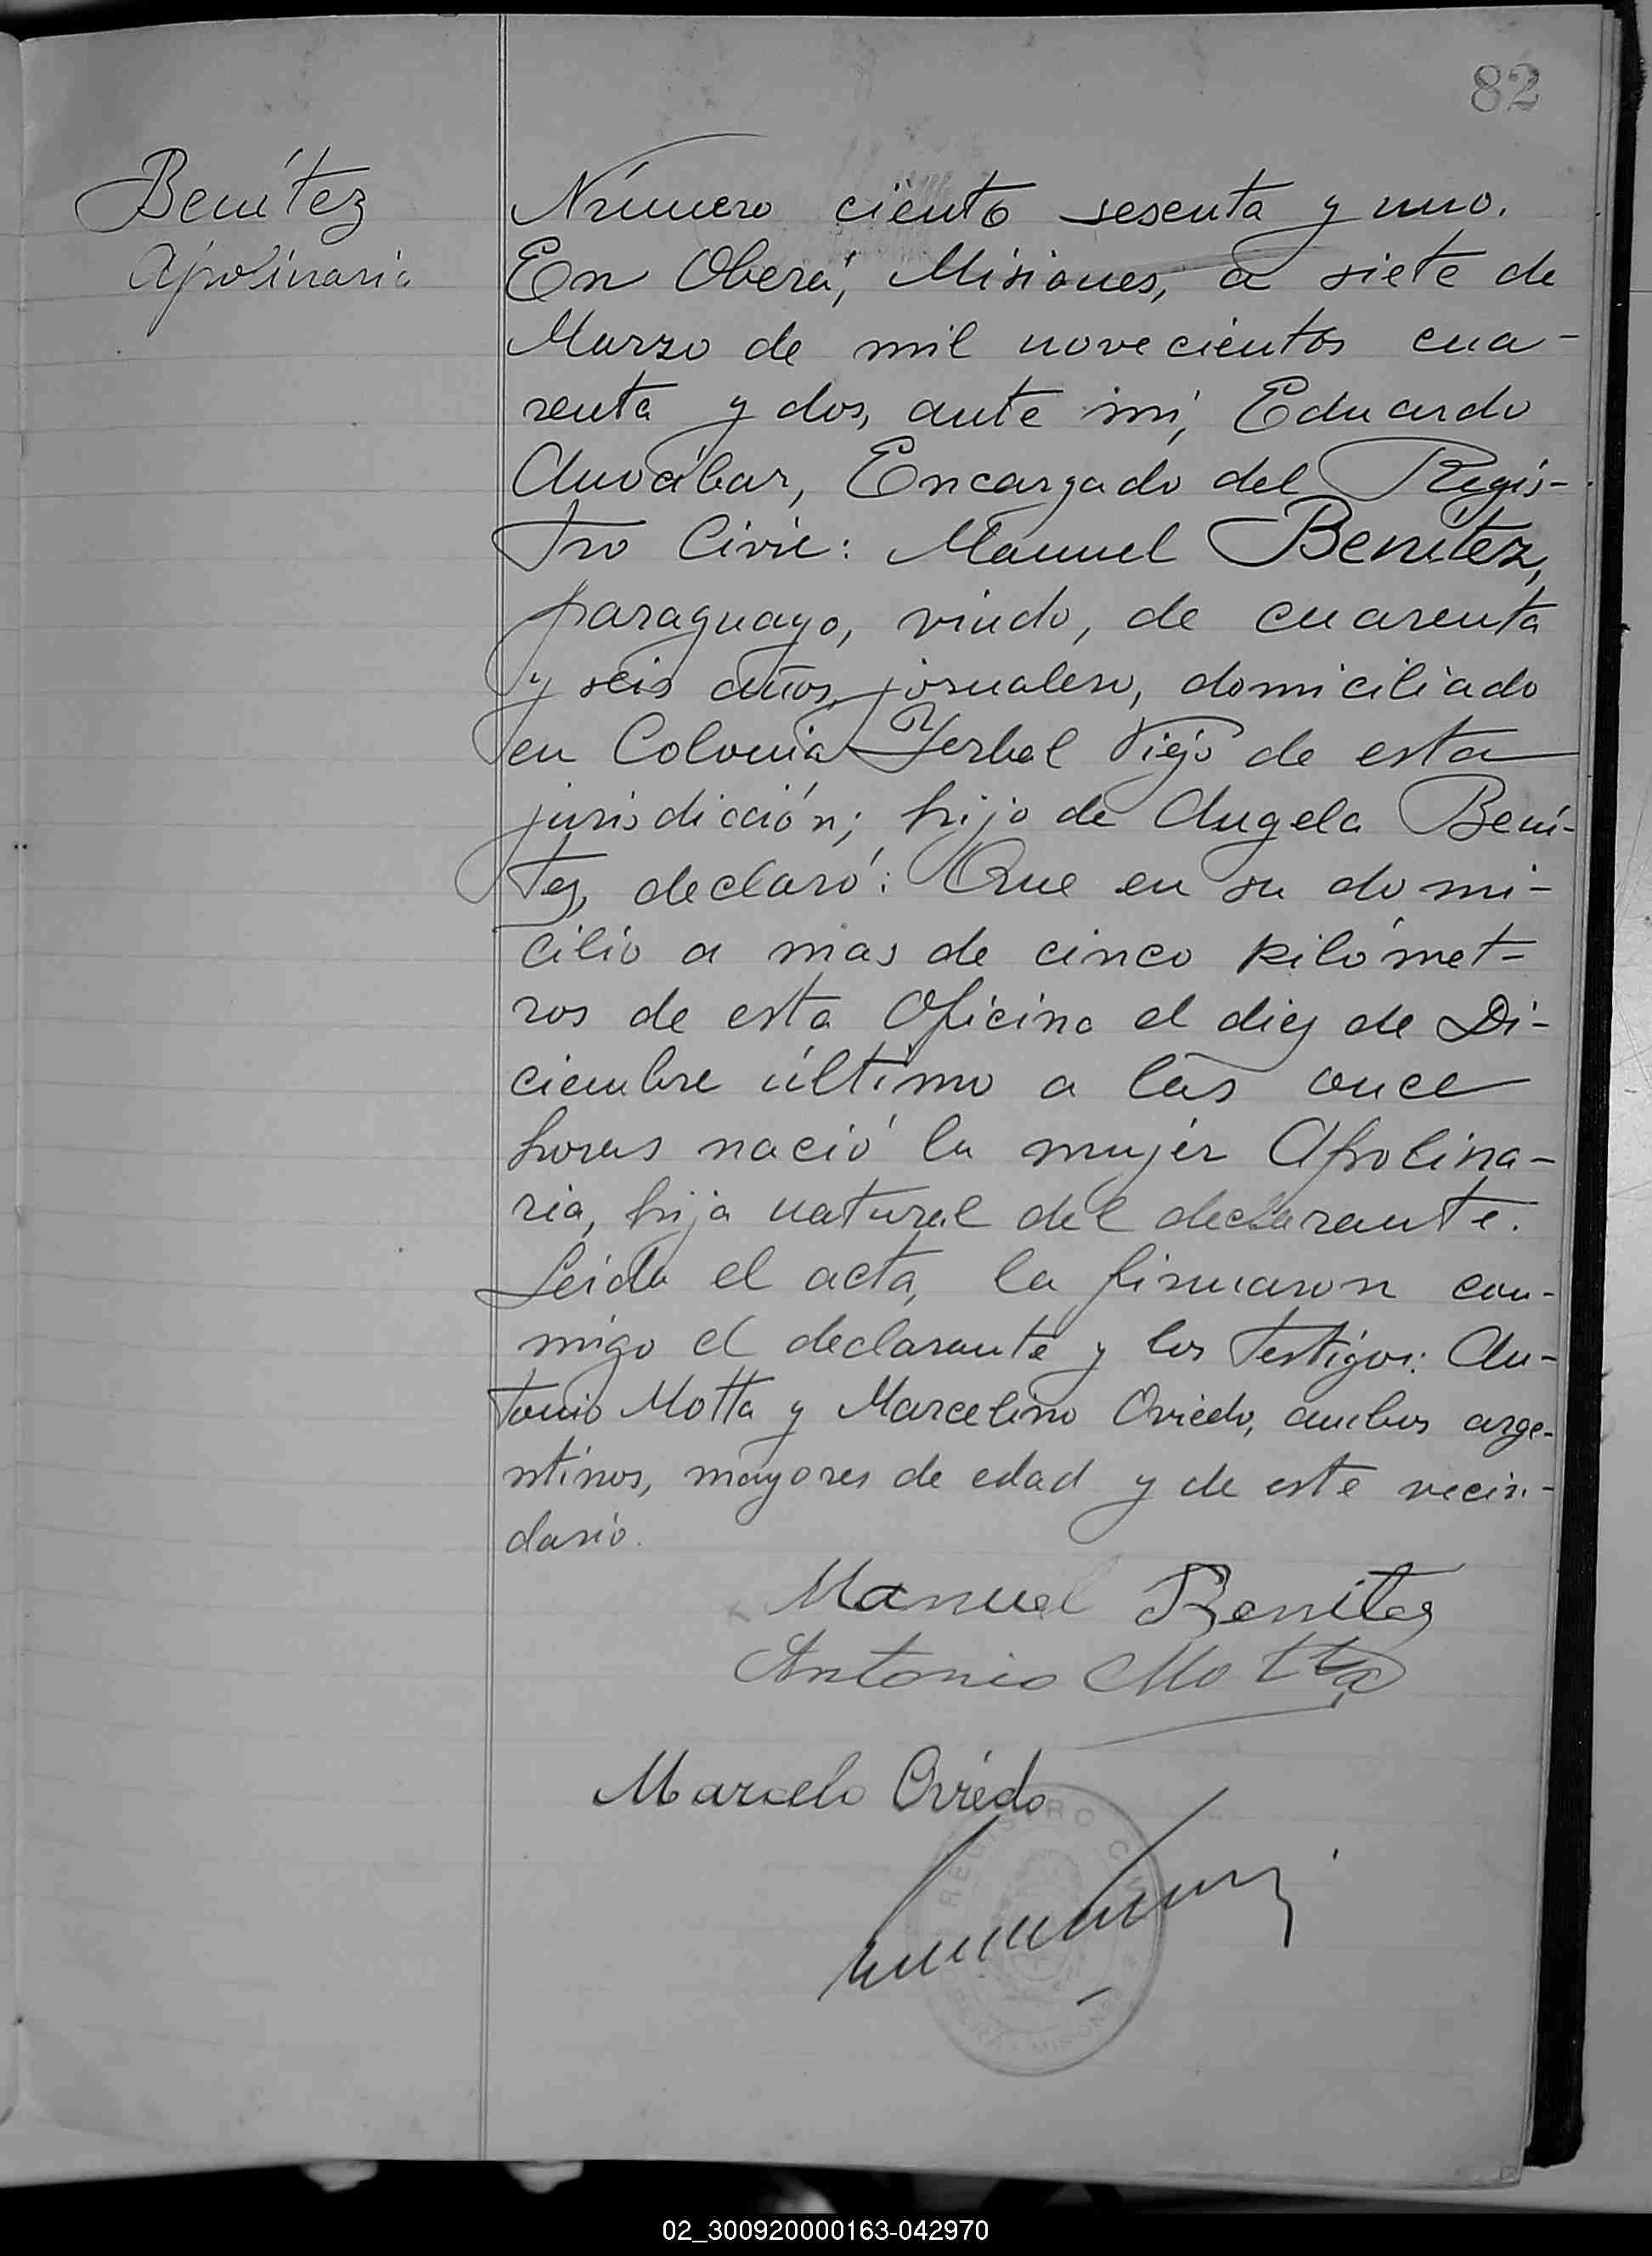 82
Benítez
Apolinaria
Número ciento sesenta y uno.
En Oberá, Misiones, a siete de
Marzo de mil novecientos cua-
renta y dos, ante mí, Eduardo
Encargado del Regis-
tro Civil: Manuel Benítez,
paraguayo, viudo, de cuarenta
y seis años, jornalero, domiciliado
en Colonia Yerbal Viejo de esta
jurisdicción; hijo de Angela Bení-
tez, declaró: Que en su domi-
cilio a mas de cinco kilómet-
ros de esta Oficina el diez de Di-
ciembre último a las once
horas nació la mujer Apolina-
ria, hija natural del declarante.
Leida el acta, la firmaron con-
migo el declarante y los testigos: An-
tonio Motta y Marcelino Oviedo, ambos arge-
ntinos, mayores de edad y de este vecin-
dario.
Manuel Benitez
Antonio Motta
Marcelo Oviedo
REGISTRO CIVIL
MISIONES
02_300920000163-042970